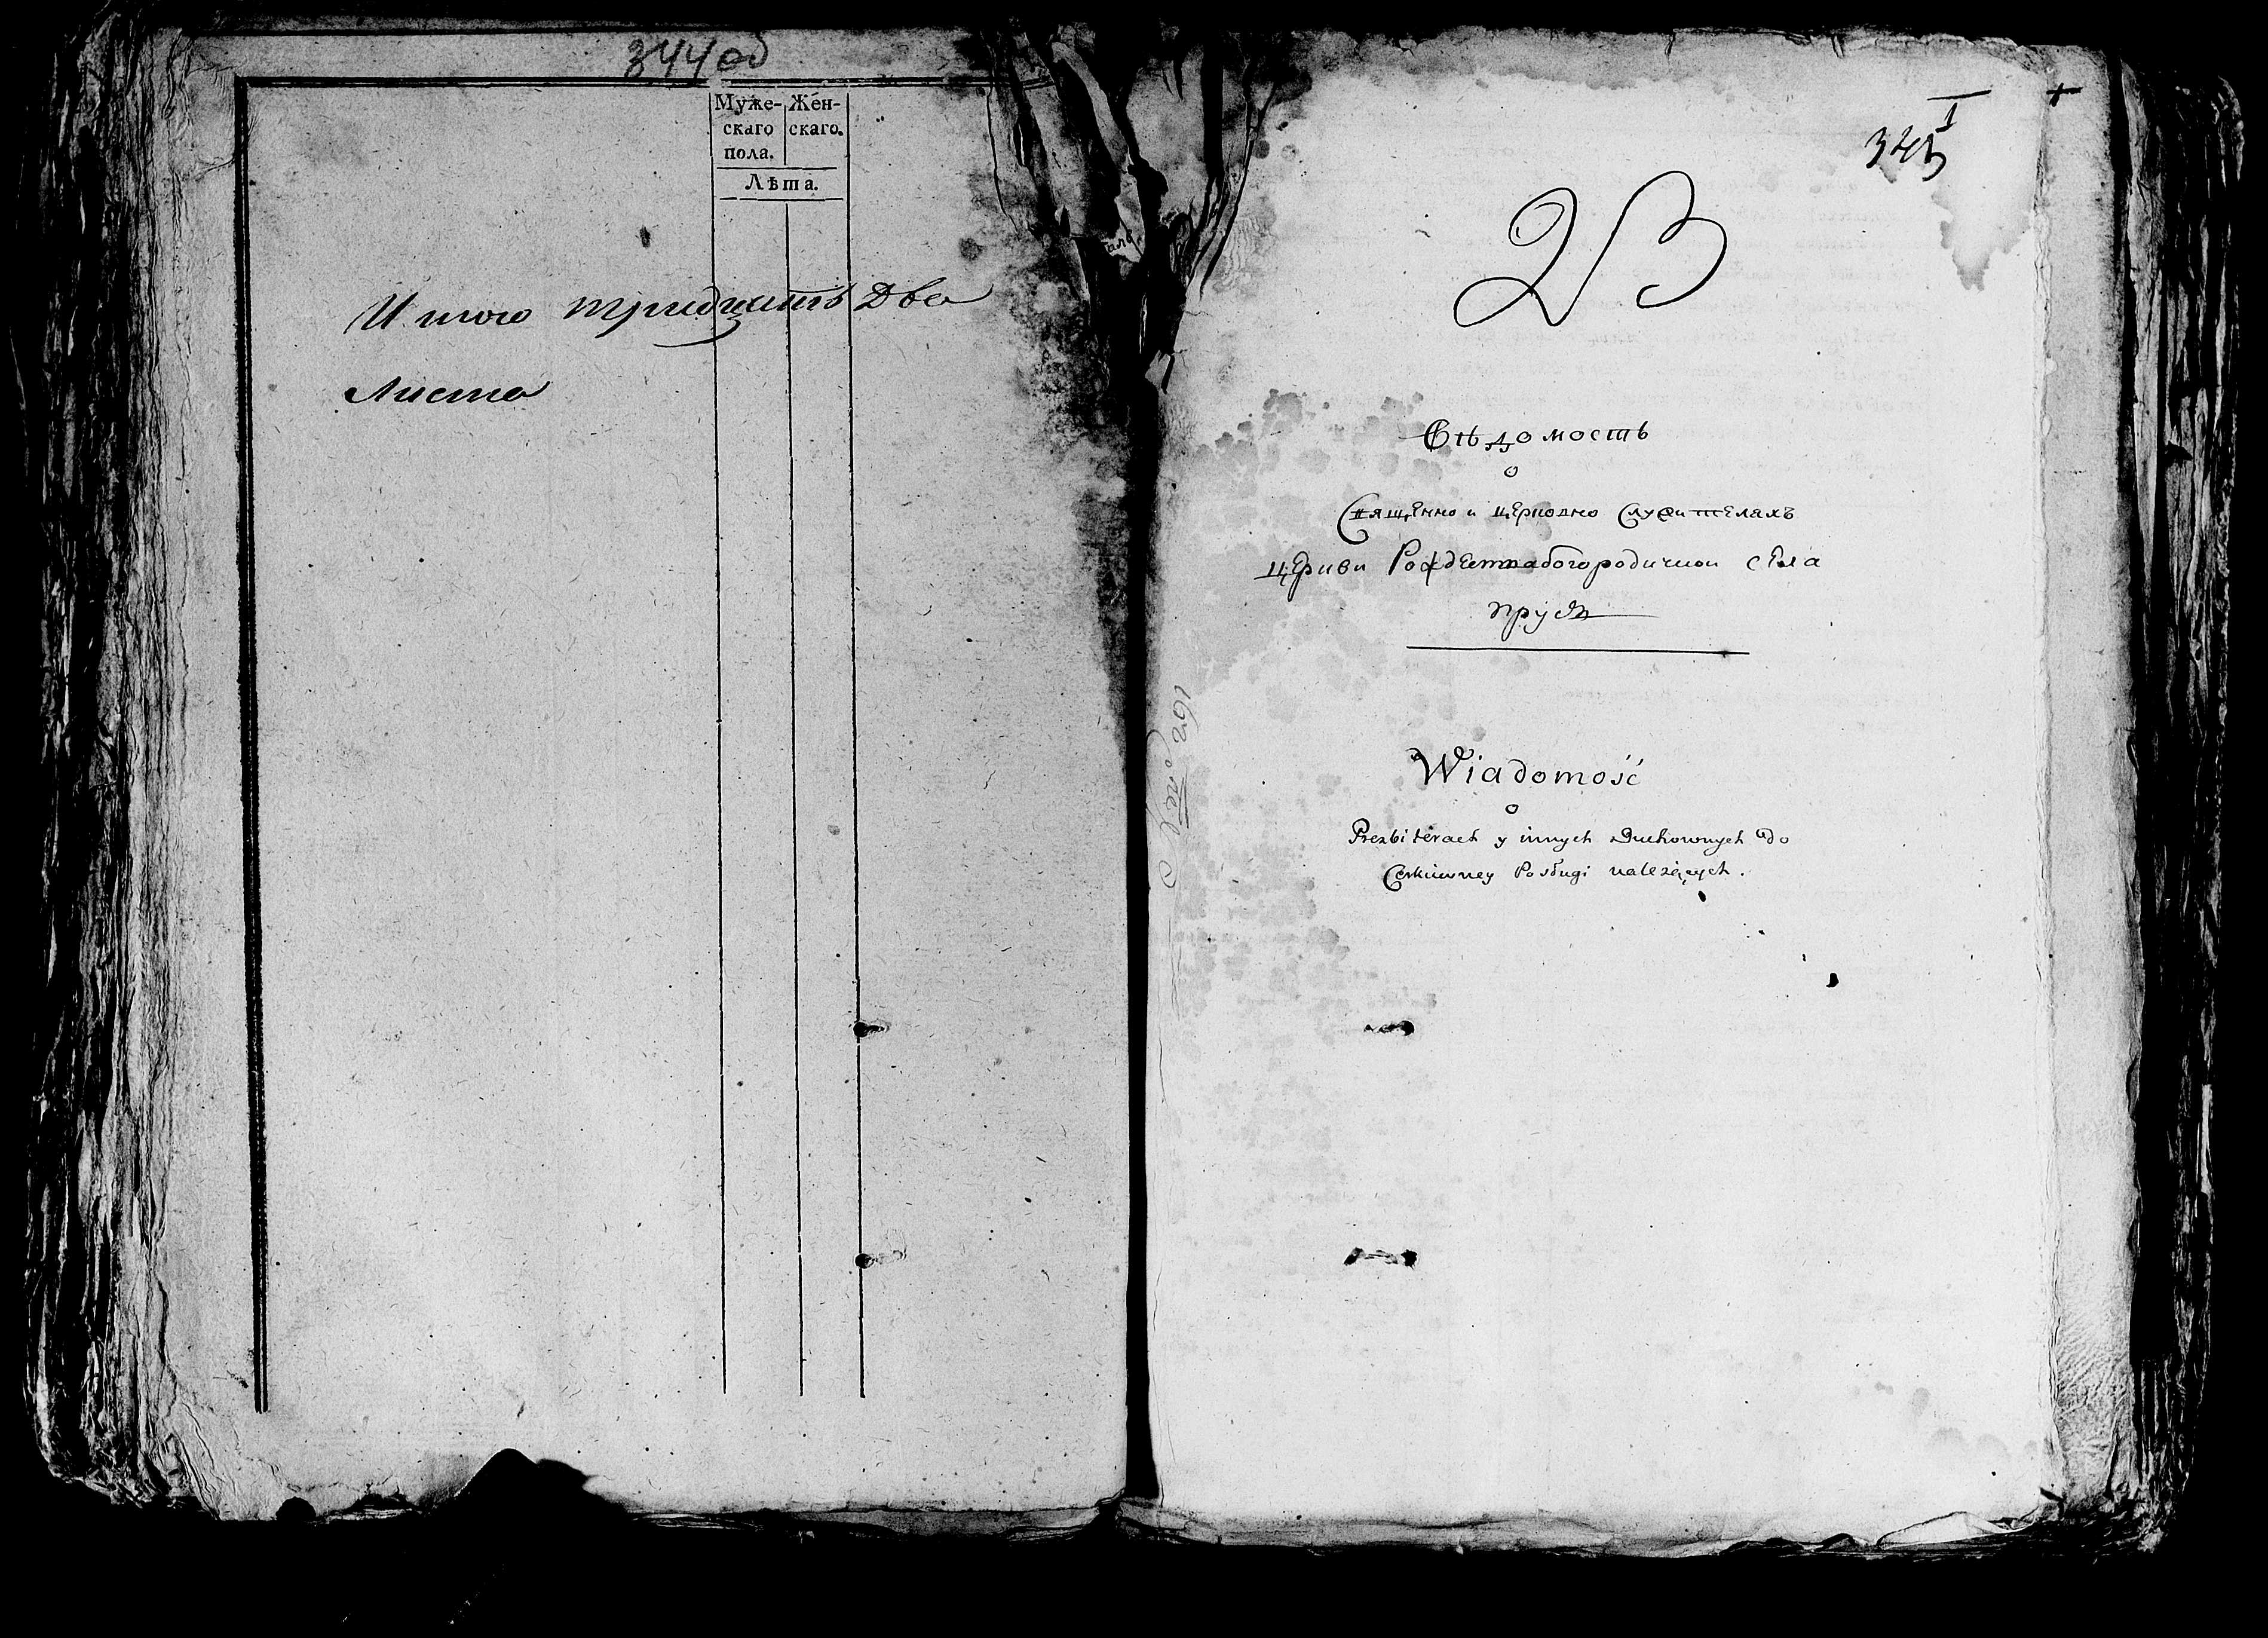 344 об
Муже- Жен-
скаго скаго.
пола.
Лѣта.
И того тридцать два
листа
345
1
23
Вѣдомость
о
Священно и церковно служителахъ
церкви Рождествабогородичнои села
Прусъ
Wiadomość
o
Prezbiterach y innych Duchownych do
Cerkiewney Posługi należących.